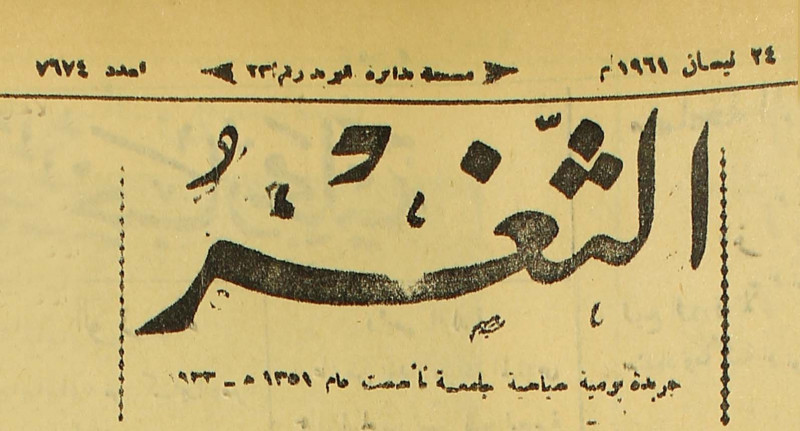 ٢٤ نيسان ١٩٦١م مسجلة بدائرة البريد رقم ٢٣ العدد ٧٦٧٤
الثغر
جريدة يومية سياسية جامعة تأسست عام ١٣٥١ هـ ـ ١٩٣٣